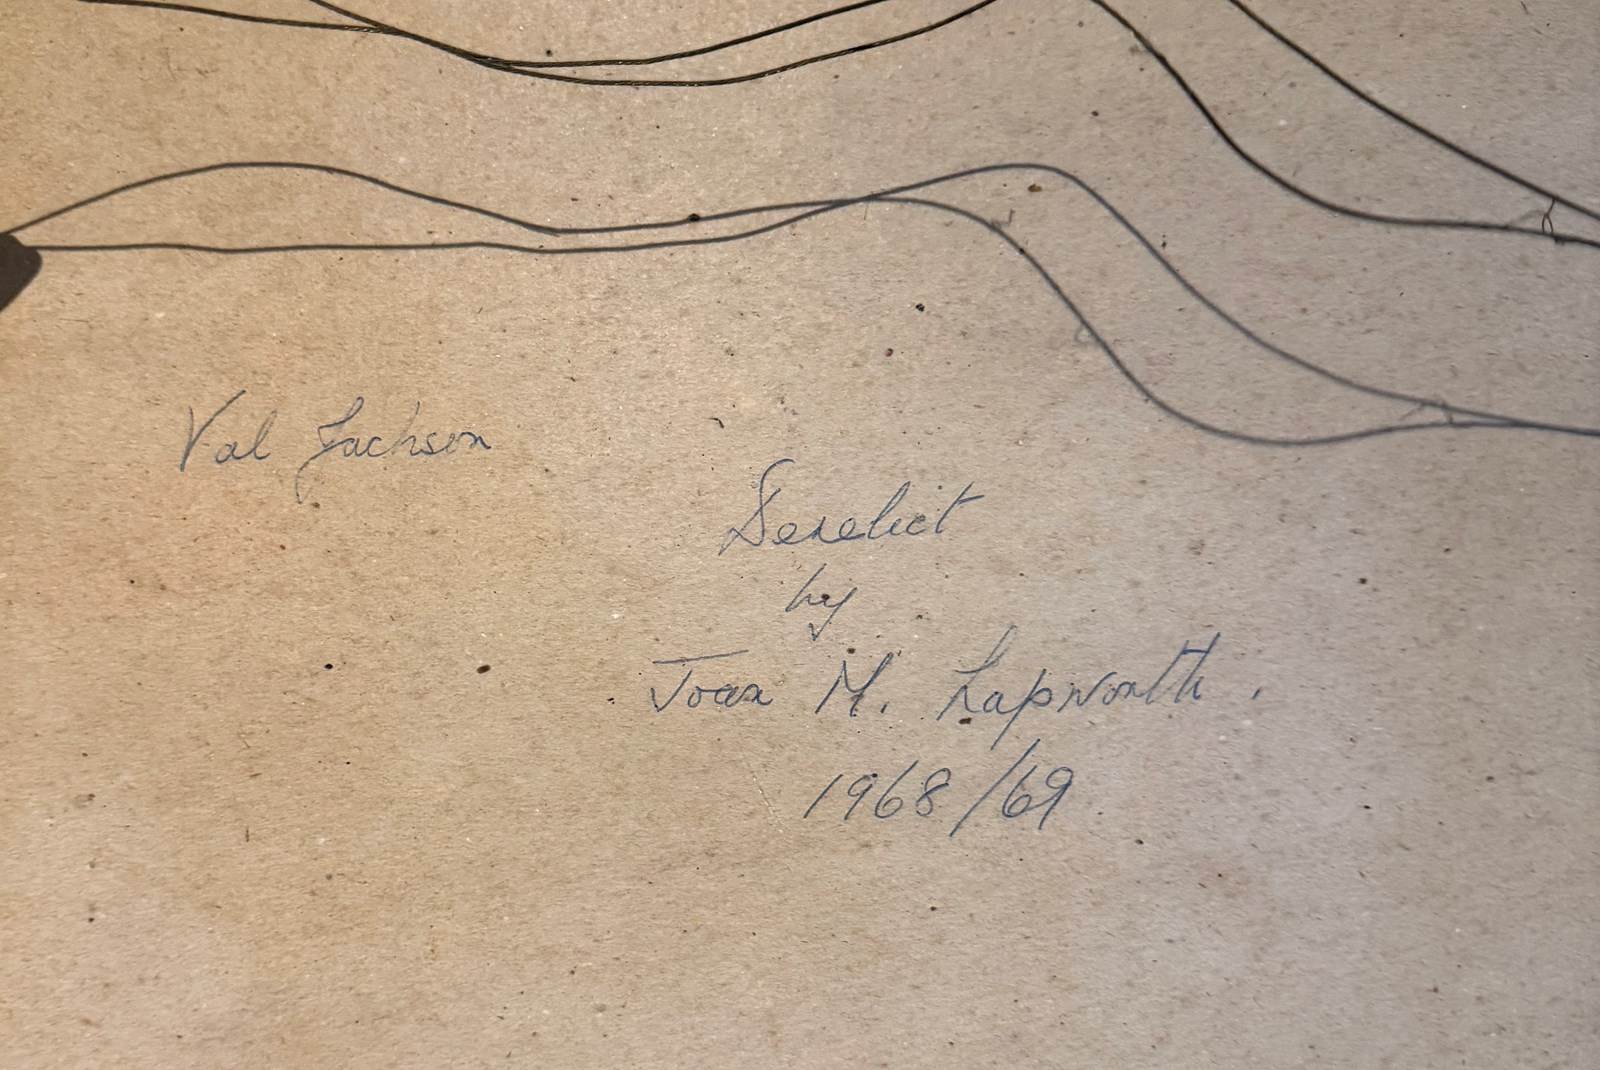 Val Jackson
Derelict
by
Joan M. Lapworth.
1968/69